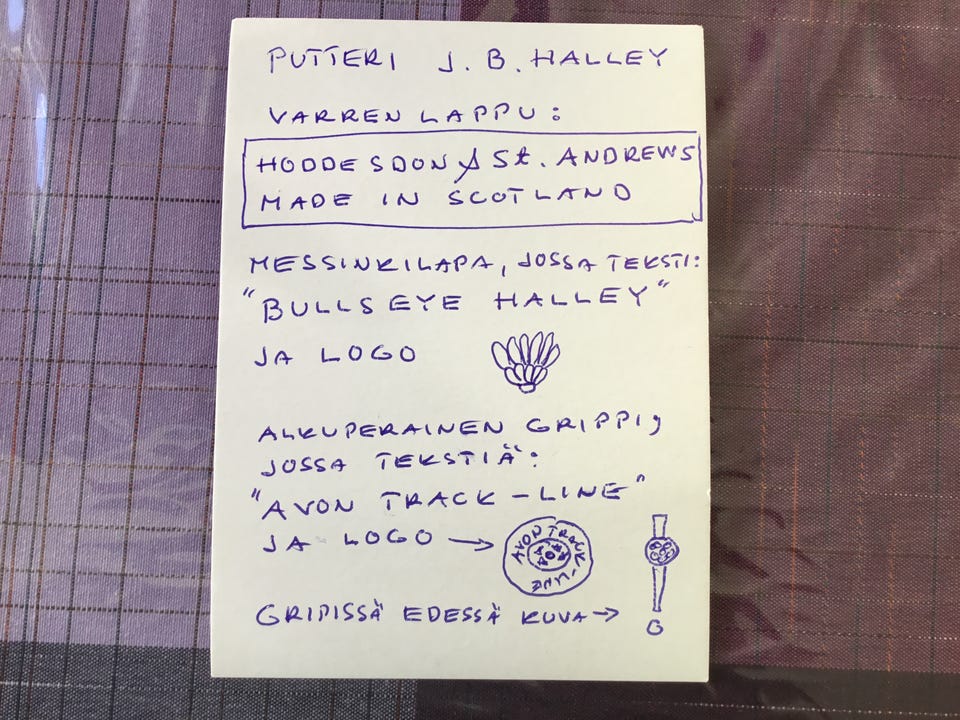 PUTTERI J. B. HALLEY
VARREN LAPPU:
HODDESDON & St. ANDREWS
MADE IN SCOTLAND
MESSINKILAPA, JOSSA TEKSTI:
"BULLSEYE HALLEY"
JA LOGO
ALKUPERAINEN GRIPPI,
JOSSA TEKSTIÄ:
"AVON TRACK-LINE"
JA LOGO →
AVON TRACK-LINE
GRIPISSÄ EDESSÄ KUVA →